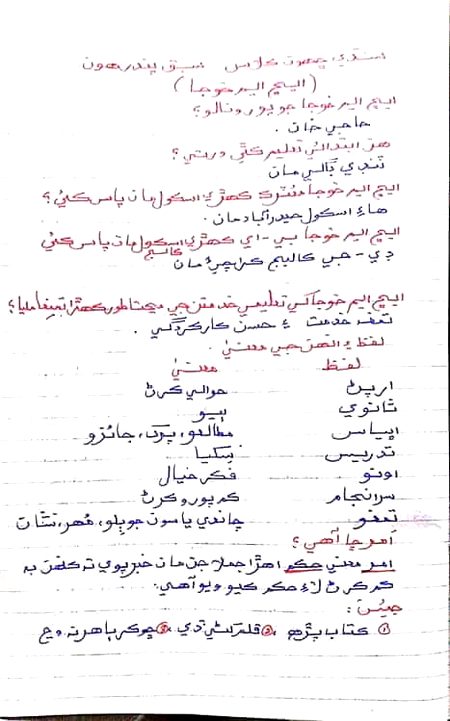 سنڌي ڇهون ڪلاس سبق پندرهون
(ايڇ ايم خوجا)
ايڇ ايم خوجا جو پورو نالو؟
حاجي خان.
هن ابتدائي تعليم ڪٿي ورتي؟
ٽنڊي باگي مان
ايڇ ايم خوجا مئٽرڪ ڪهڙي اسڪول مان پاس ڪئي؟
هاءِ اسڪول حيدرآباد مان.
ايڇ ايم خوجا بي-اي ڪهڙي اسڪول مان پاس ڪئي
ڪاليج
ڊي-جي ڪاليج ڪراچيءَ مان
ايڇ ايم خوجا کي تعليمي خدمتن جي مڃتا طور ڪهڙا تمغا مليا؟
تمغه خدمت ۽ حسن ڪارڪردگي.
لفظ ۽ انهن جي معنيٰ.
لفظ معنيٰ
ارپڻ حوالي ڪرڻ
ثانوي ٻيو
اڀياس مطالعو، پرک، جائزو
تدريس سکيا
اونو فڪر خيال
سرانجام ڪم پورو ڪرڻ
تمغو چاندي يا سون جو ٻلو، مُهر، نشان
امر ڇا آهي؟
امر معنيٰ حڪم اهڙا جملا جن مان خبر پوي ته ڪنهن به
ڪم ڪرڻ لاءِ حڪم ڪيو ويو آهي.
جيئن:
① ڪتاب پڙهه ② قلم کڻي ڏي ③ ڇوڪر ٻاهر نه وڃ